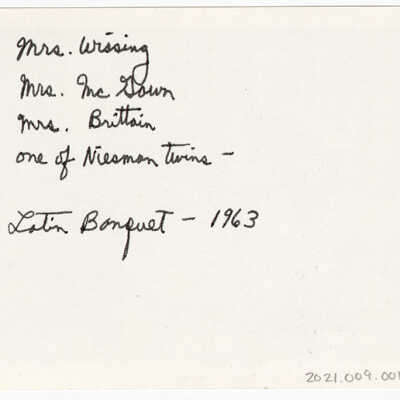 Mrs. Wissing
Mrs. Mc Gown
Mrs. Brittain
one of Niesman twins -
Latin Banquet - 1963
2021.009.001